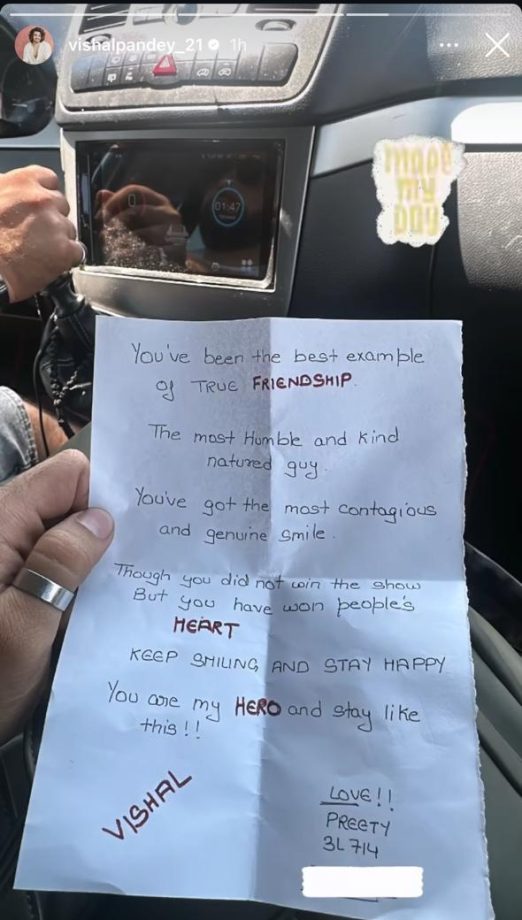 vishalpandey_21 1h
01:47
made
my
day
You've been the best example
of TRUE FRIENDSHIP.
The most Humble and kind
natured guy.
You've got the most contagious
and genuine smile.
Though you did not win the show
But you have won people's
HEART
KEEP SMILING AND STAY HAPPY
You are my HERO and stay like
this!!
VISHAL
LOVE!!
PREETY
3L714